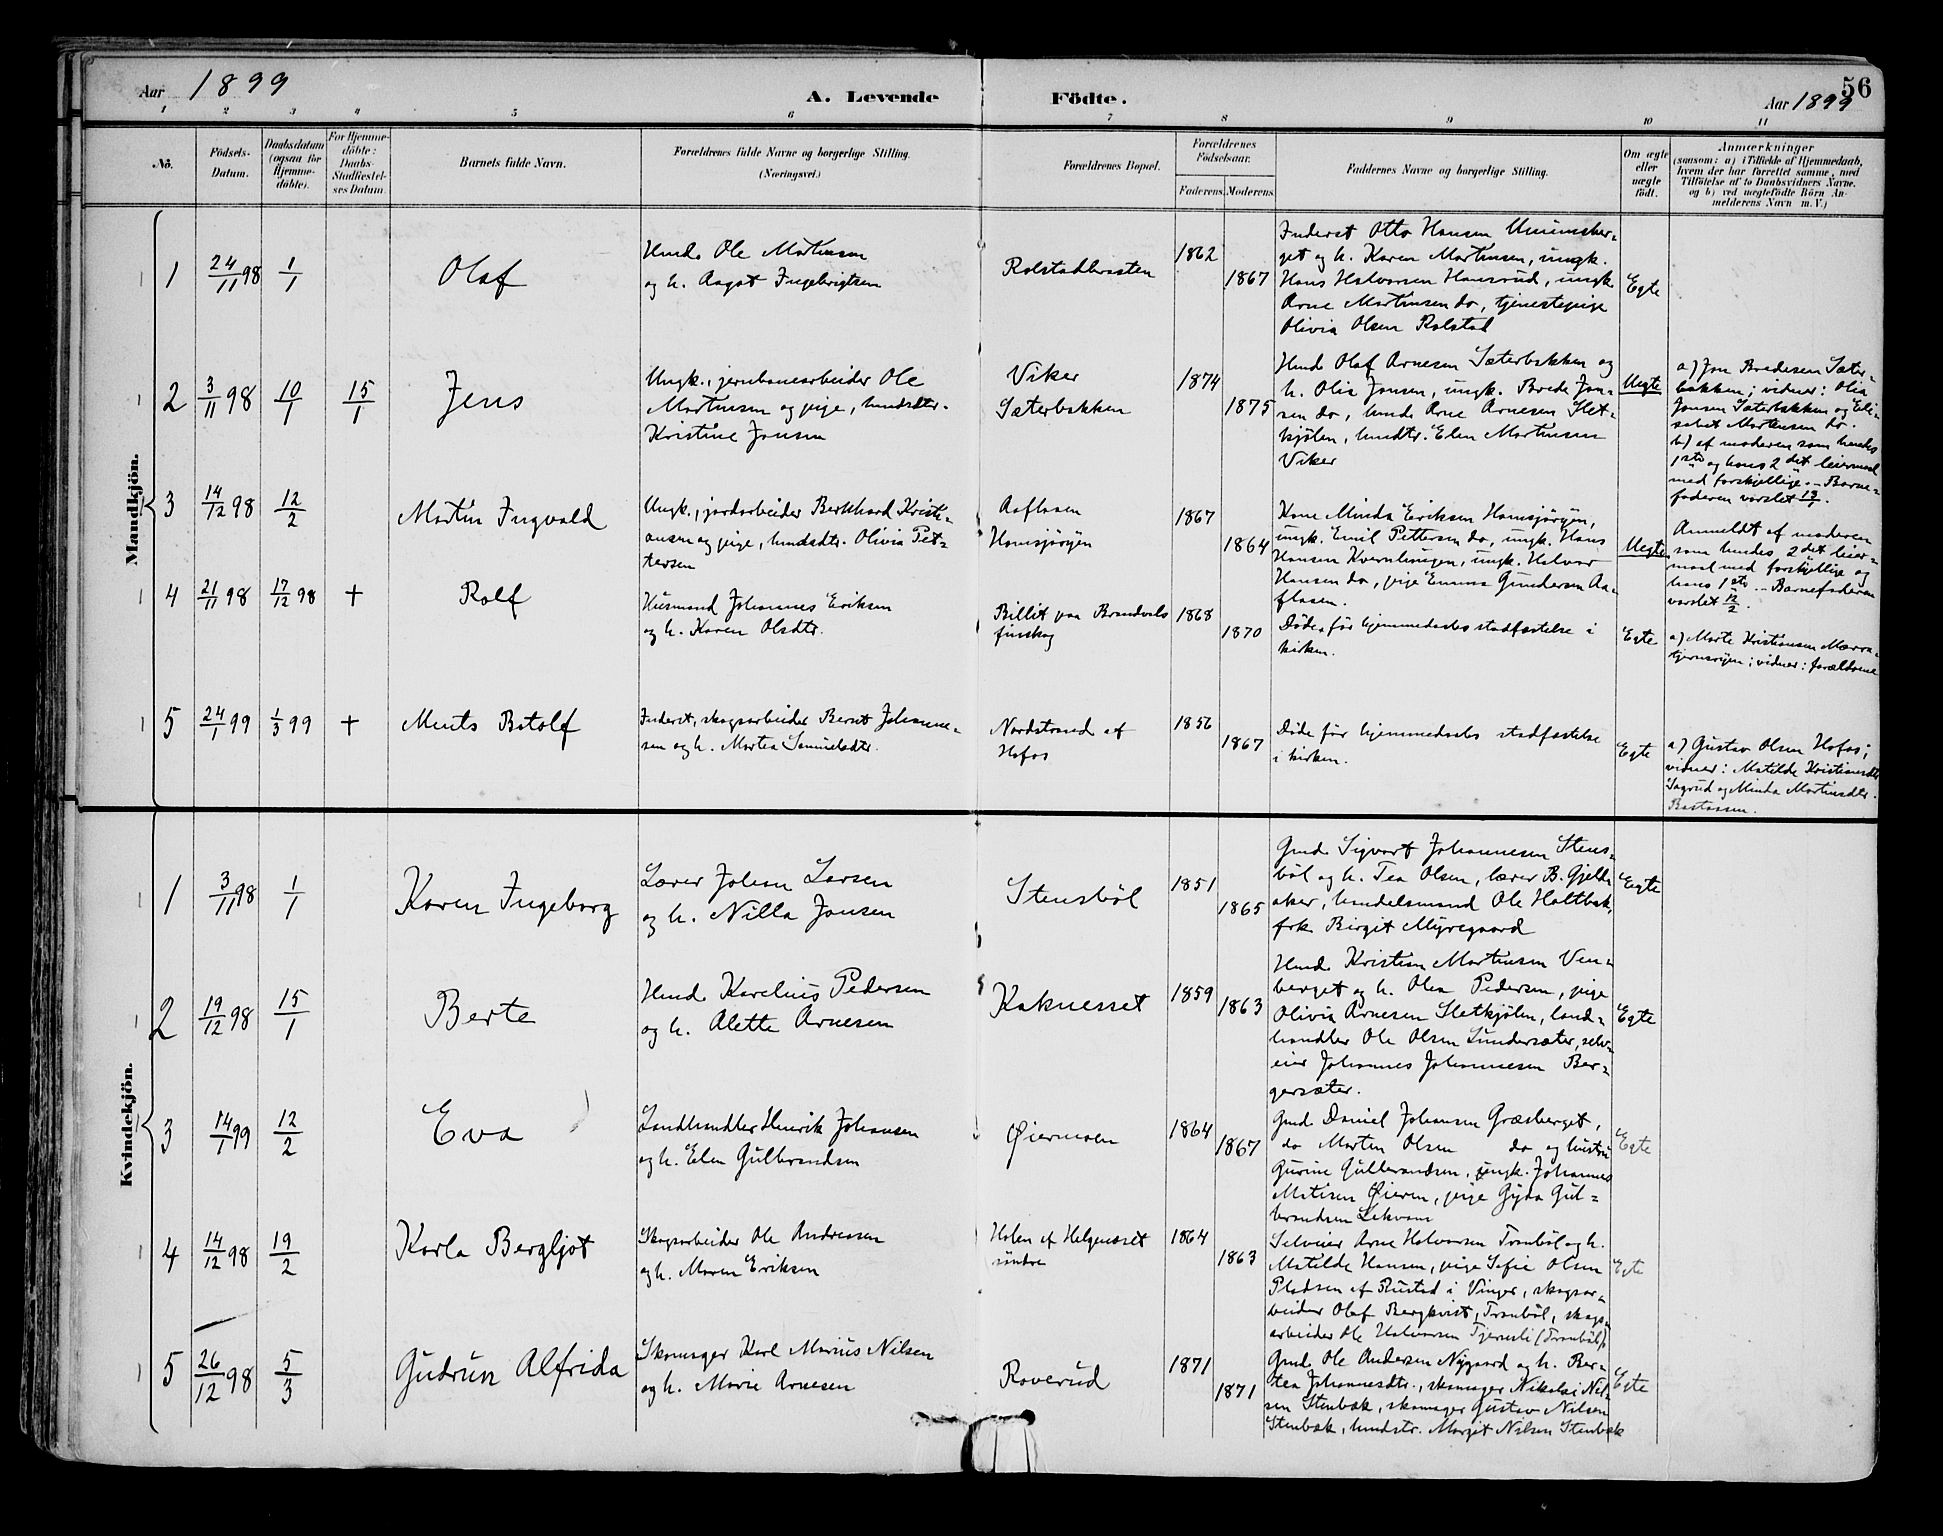 Aar 1899
A. Levende Födte.
56
Aar 1899
1 2 3 4 5 6 7 8 9 10 11
No.
Födsels-Datum.
Daabsdatum (ogsaa for Hjemme-döbte).
For Hjemme-döbte: Daabs-Stadfæstel-ses Datum.
Barnets fulde Navn.
Forældrenes fulde Navne og borgerlige Stilling.
(Næringsvei.)
Forældrenes Bopæl.
Forældrenes Födselsaar.
Faderens. Moderens.
Faddernes Navne og borgerlige Stilling.
Om ægte eller uægte födt.
Anmærkninger
(saasom: a) i Tilfælde af Hjemmedaab,
hvem der har forrettet samme, med
Tilföielse af to Daabsvidners Navne.
og b) ved uægtefödte Börn An-
melderens Navn m. V.)
Mandkjön.
1 24/11 98 1/1 Olaf
Hmd. Ole Martinsen
og h. Aagot Ingebrigtsen
Rolstadbraaten
1862
1867
Inderst Otto Hansen
get og h. Karen Martinsen, ungk.
Hans Halvorsen Hansrud, ungk.
Arne Martinsen do, tjenestepige
Olivia Olsen Rolstad
Egte
2 3/11 98 10/1 15/1 Jens
Ungk., jernbanearbeider Ole
Martinsen og pige, husmdtr.
Kristine Jonsen
Viker
Sæterbakken
1874
1875
Hmd Olaf Arnesen Sæterbakken og
h. Olia Jonsen, ungk. Brede Jon-
sen do, hmd. Arne Arnesen Slet-
kjölen, husmdtr. Elen Martinsen
Viker
Uegte
a) Jon Bredesen Sæter-
bakken; vidner: Olia
Jonsen Sæterbakken og Eli-
sabet Mortensen do.
b) af moderen som hendes
1ste og hans 2det leiermaal
med forskjellige. – Barne-
faderen varslet 13/1.
3 14/12 98 12/2 Martin Ingvald
Ungk., jordarbeider Berthard Kristi-
ansen og pige, husmdtr. Olivia Pet-
tersen
Aaflaaen
Hansjørgen
1867
1864
Kone Minda Eriksen Hansjørgen,
ungk. Emil Pettersen do, ungk. Hans
Hansen Kvernhungen, ungk. Halvor
Hansen do, pige Emma Gundersen Aa-
flaaen.
Uegte
Anmeldt af moderen
som hendes 2det leier-
maal med forskjellige og
hans 1ste – Barnefaderen
varslet 12/2.
4 21/11 98 17/12 98 + Rolf
Husmand Johannes Eriksen
og h. Karen Olsdtr.
Billit paa Brandvols
finskog
1868
1870
Døde før hjemmedaabs stadfæstelse i
kirken.
Egte
a) Marte Kristiansen
vidner: forældrene
5 24/1 99 1/3 99 + Ments Botolf
Inderst, skogsarbeider Bernt Johanne-
sen og h. Martea Samuelsdtr.
Nordstrand af
Hofos
1856
1867
Døde før hjemmedaabs stadfæstelse
i kirken.
Egte
a) Gustav Olsen Hofos;
vidner: Matilde Kristiansdtr
Sagrud og Minda Martinsdtr.
Bastaasen.
Kvindekjön.
1 3/11 98 1/1 Karen Ingeborg
Lærer Johan Larsen
og h. Nilla Jonsen
Stensböl
1851
1865
Gmd. Sigvart Johannesen Stens-
böl og h. Tea Olsen, lærer B. Gjeld-
aker, handelsmand Ole Holtbak,
frk. Birgit Myregaard
Egte
2 19/12 98 15/1 Berte
Hmd. Karelius Pedersen
og h. Alette Arnesen
Kaknesset
1859
1863
Hmd. Kristian Martinsen Ven-
berget og h. Olea Pedersen, pige
Olivia Arnesen Sletkjölen, land-
handler Ole Olsen Lundersæter, selv-
eier Johannes Johannesen Ber-
gersæter.
Egte
3 14/1 99 12/2 Eva
Landhandler Henrik Johansen
og h. Elen Gulbrandsen
Øiermoen
1864
1867
Gmd. Daniel Johansen Græsberget,
do Morten Olsen do og hustru
Gurine Gulbrandsen, ungk. Johannes
Matisen Øieren, pige Gyda Gul-
brandsen Lekvam
Egte
4 14/12 98 19/2 Karla Bergljot
Skogsarbeider Ole Andreasen
og h. Maren Eriksen
Holen af Helgenæset
söndre
1864
1863
Selveier Arne Halvorsen Tranböl og h.
Matilde Hansen, pige Sofie Olsen
Pladsen af Rustad i Vinger, skogsar-
beider Olaf Bergkvist, Tranböl, skogs-
arbeider Ole Halvorsen Tjernsli (Tranböl).
Egte
5 26/12 98 5/3 Gudrun Alfrida
Skomager Karl Marius Nilsen
og h. Marie Arnesen
Roverud
1871
1871
Gmd. Ole Andersen Nygaard og h. Ber-
tea Johannesdtr., skomager Nikolai Nil-
sen Stenbæk, skomager Gustav Nilsen
Stenbæk, husmdtr. Margit Nilsen Stenbæk
Egte